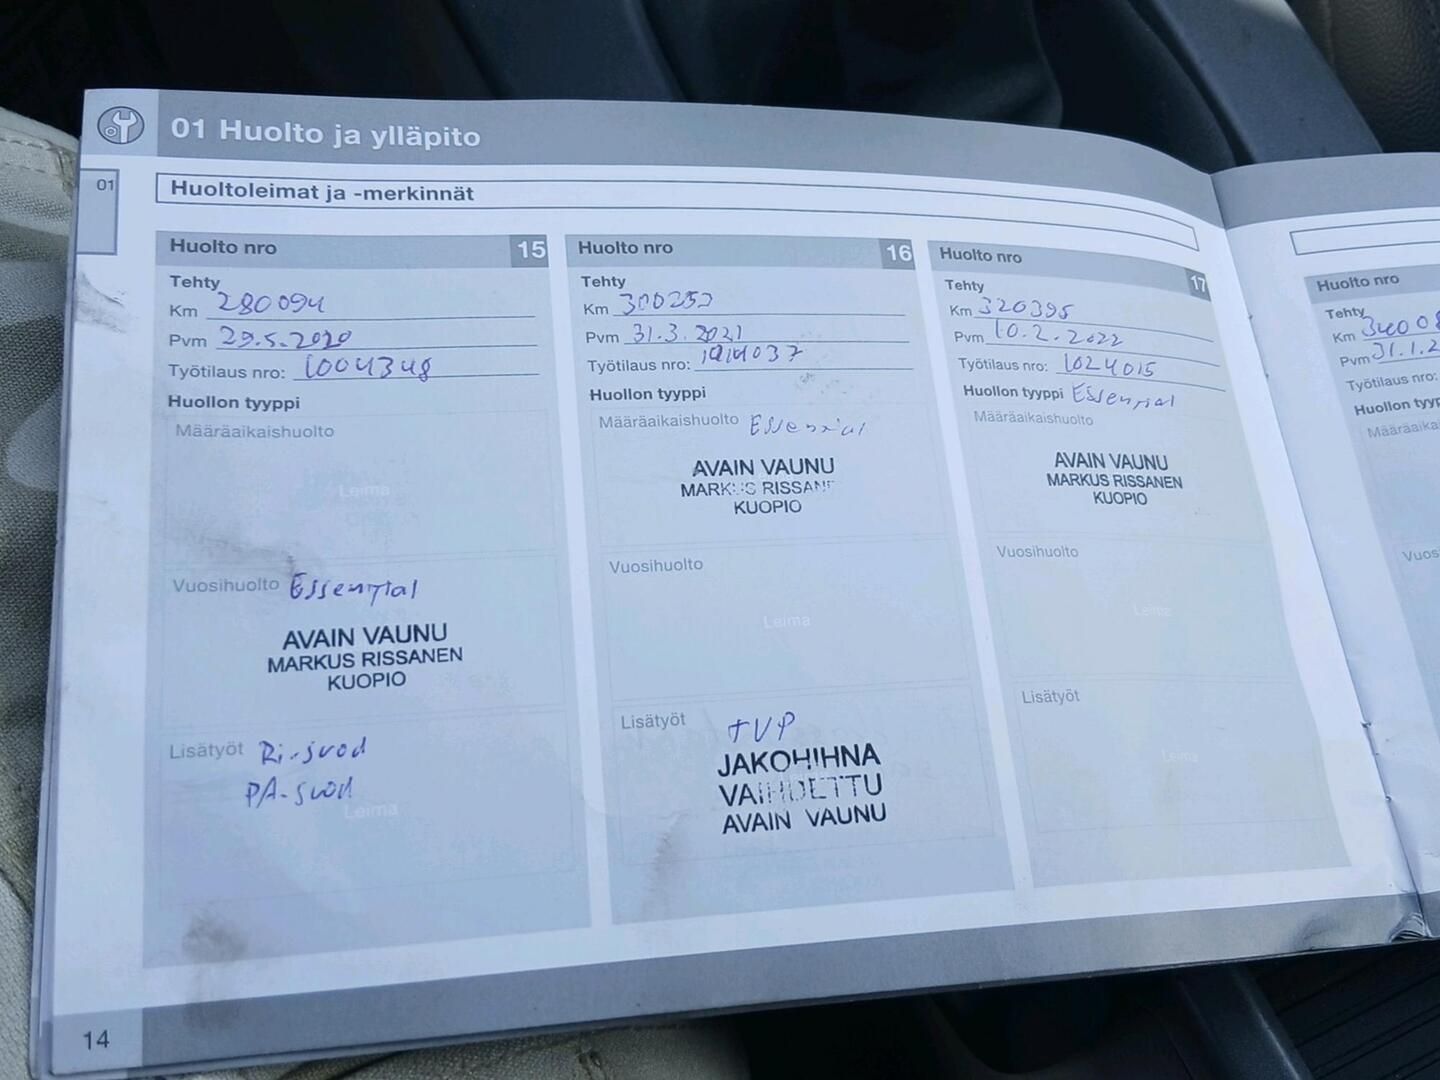 01 Huolto ja ylläpito
01
Huoltoleimat ja -merkinnät
Huolto nro 15
Tehty
Km 280094
Pvm 29.5.2020
Työtilaus nro: 1004348
Huollon tyyppi
Määräaikaishuolto
Leima
Vuosihuolto Essential
AVAIN VAUNU
MARKUS RISSANEN
KUOPIO
Lisätyöt Ri-suod
PA-suod
Leima
14
Huolto nro 16
Tehty
Km 300252
Pvm 31.3.2021
Työtilaus nro: 1014037
Huollon tyyppi
Määräaikaishuolto Essential
AVAIN VAUNU
MARKUS RISSANE
KUOPIO
Vuosihuolto
Leima
Lisätyöt TVP
JAKOHIHNA
VAIHDETTU
AVAIN VAUNU
Huolto nro 17
Tehty
Km 320395
Pvm 10.2.2022
Työtilaus nro: 1024015
Huollon tyyppi Essential
Määräaikaishuolto
AVAIN VAUNU
MARKUS RISSANEN
KUOPIO
Vuosihuolto
Leima
Lisätyöt
Leima
Huolto nro
Tehty
Km 34008
Pvm 31.1.2
Työtilaus nro:
Huollon tyyp
Määräaika
Vuos